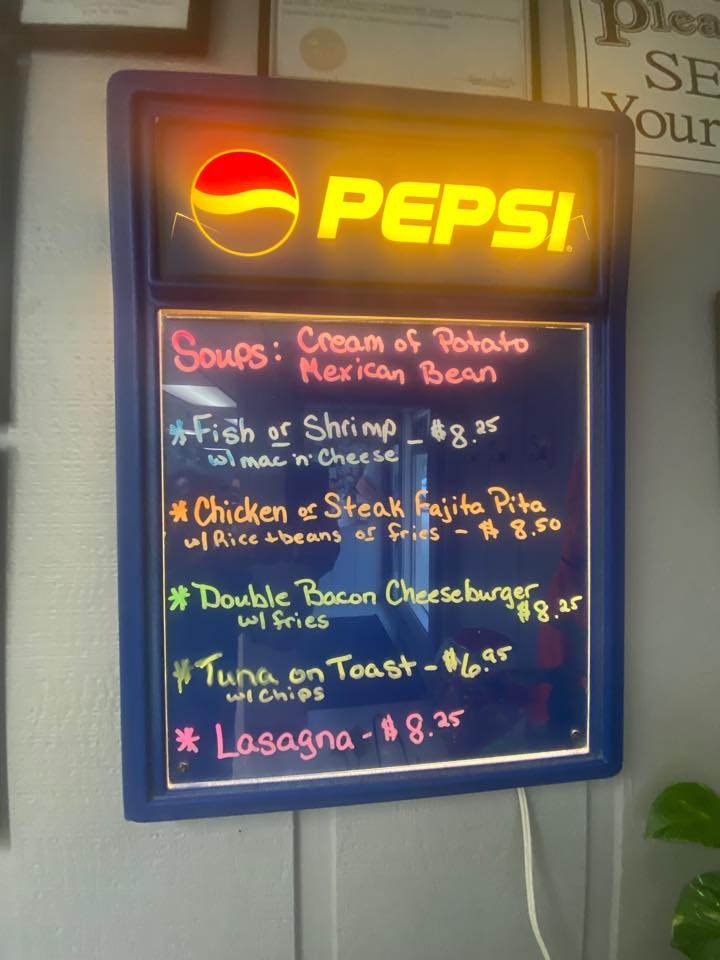 Plea
SE
Your
PEPSI
Soups: Cream of Potato
Mexican Bean
*Fish or Shrimp - $8.25
w/ mac 'n' Cheese
* Chicken or Steak Fajita Pita
w/ Rice + beans or fries - $ 8.50
* Double Bacon Cheeseburger
w/ fries $8.25
* Tuna on Toast - $6.95
w/ Chips
* Lasagna - $ 8.25